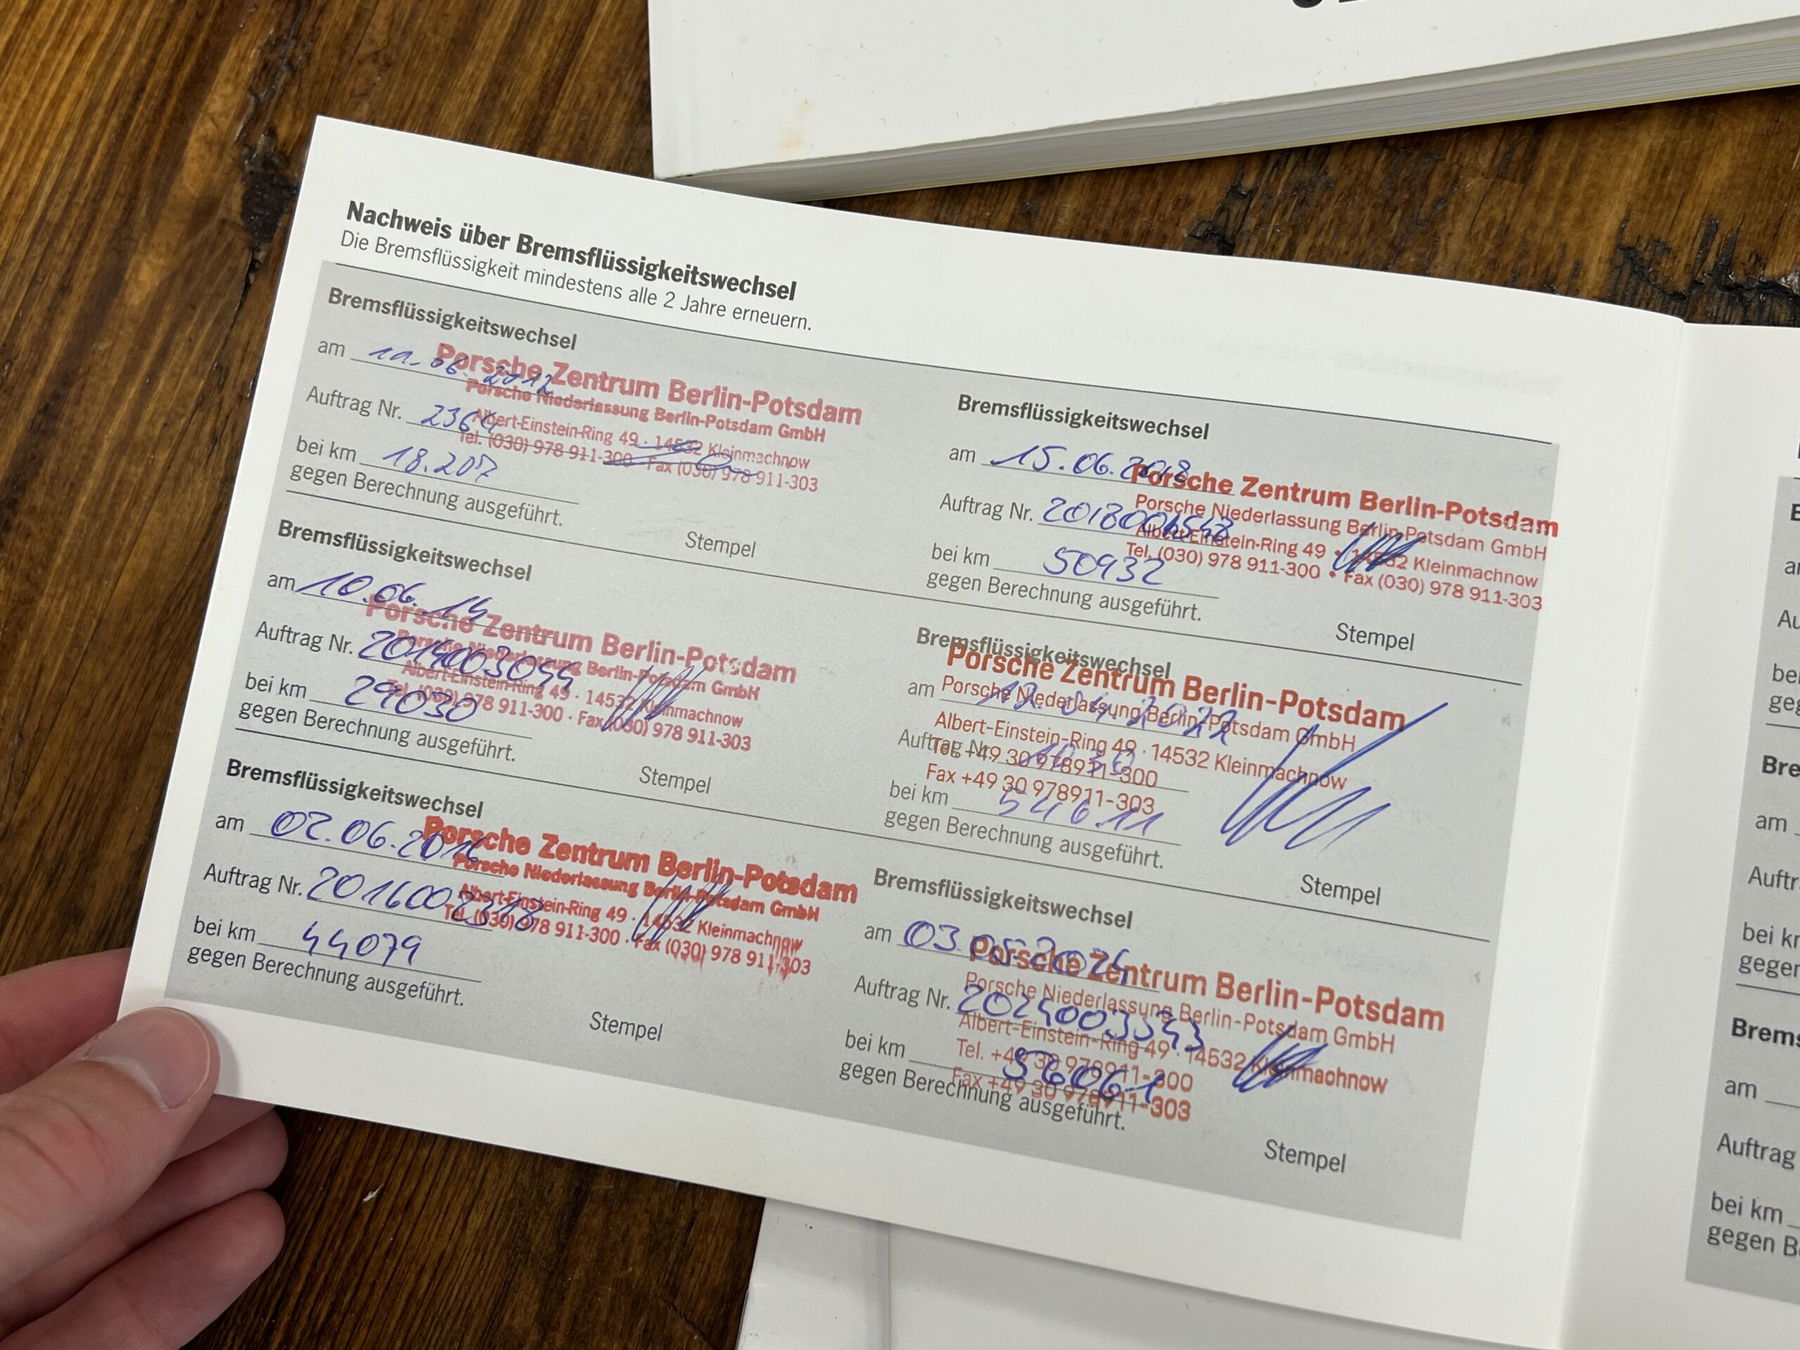 Nachweis über Bremsflüssigkeitswechsel
Die Bremsflüssigkeit mindestens alle 2 Jahre erneuern.
Bremsflüssigkeitswechsel
am 11.06.2012
Porsche Zentrum Berlin-Potsdam
Porsche Niederlassung Berlin-Potsdam GmbH
Auftrag Nr. 2364
Albert-Einstein-Ring 49 · 14532 Kleinmachnow
Tel. (030) 978 911-300 · Fax (030) 978 911-303
bei km 18.207
gegen Berechnung ausgeführt.
Stempel
Bremsflüssigkeitswechsel
am 10.06.14
Porsche Zentrum Berlin-Potsdam
Porsche Niederlassung Berlin-Potsdam GmbH
Auftrag Nr.
Albert-Einstein-Ring 49 · 14532 Kleinmachnow
Tel. (030) 978 911-300 · Fax (030) 978 911-303
bei km 29030
gegen Berechnung ausgeführt.
Stempel
Bremsflüssigkeitswechsel
am 02.06.2016
Porsche Zentrum Berlin-Potsdam
Porsche Niederlassung Berlin-Potsdam GmbH
Auftrag Nr.
Albert-Einstein-Ring 49 · 14532 Kleinmachnow
Tel. (030) 978 911-300 · Fax (030) 978 911-303
bei km 44079
gegen Berechnung ausgeführt.
Stempel
Bremsflüssigkeitswechsel
am 15.06.2018
Porsche Zentrum Berlin-Potsdam
Porsche Niederlassung Berlin-Potsdam GmbH
Auftrag Nr.
Albert-Einstein-Ring 49 • 14532 Kleinmachnow
Tel. (030) 978 911-300 • Fax (030) 978 911-303
bei km 50932
gegen Berechnung ausgeführt.
Stempel
Bremsflüssigkeitswechsel
Porsche Zentrum Berlin-Potsdam
am
Porsche Niederlassung Berlin-Potsdam GmbH
Albert-Einstein-Ring 49 · 14532 Kleinmachnow
Auftrag Nr.
Tel. +49 30 978911-300
Fax +49 30 978911-303
bei km 54611
gegen Berechnung ausgeführt.
Stempel
Bremsflüssigkeitswechsel
am 03.05.2024
Porsche Zentrum Berlin-Potsdam
Porsche Niederlassung Berlin-Potsdam GmbH
Auftrag Nr. 2024003343
Albert-Einstein-Ring 49 · 14532 Kleinmachnow
Tel. +49 30 978911-300
bei km 56061
Fax +49 30 978911-303
gegen Berechnung ausgeführt.
Stempel
am
bei km
Auftrag
bei km
am
Auftrag
bei km